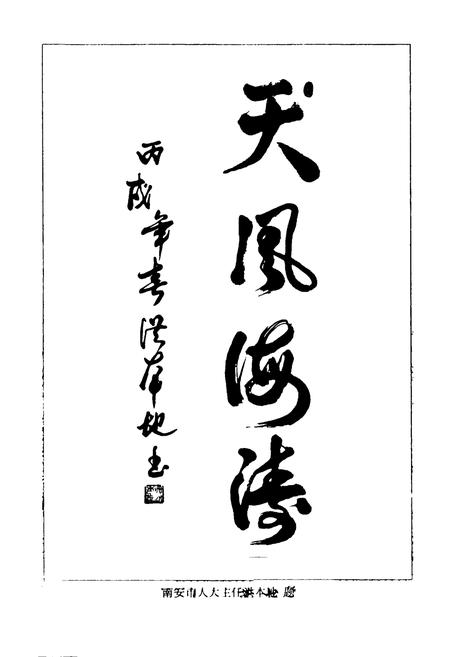 天風海涛
丙戌年春洪本地书
南安市人大主任洪本地 题